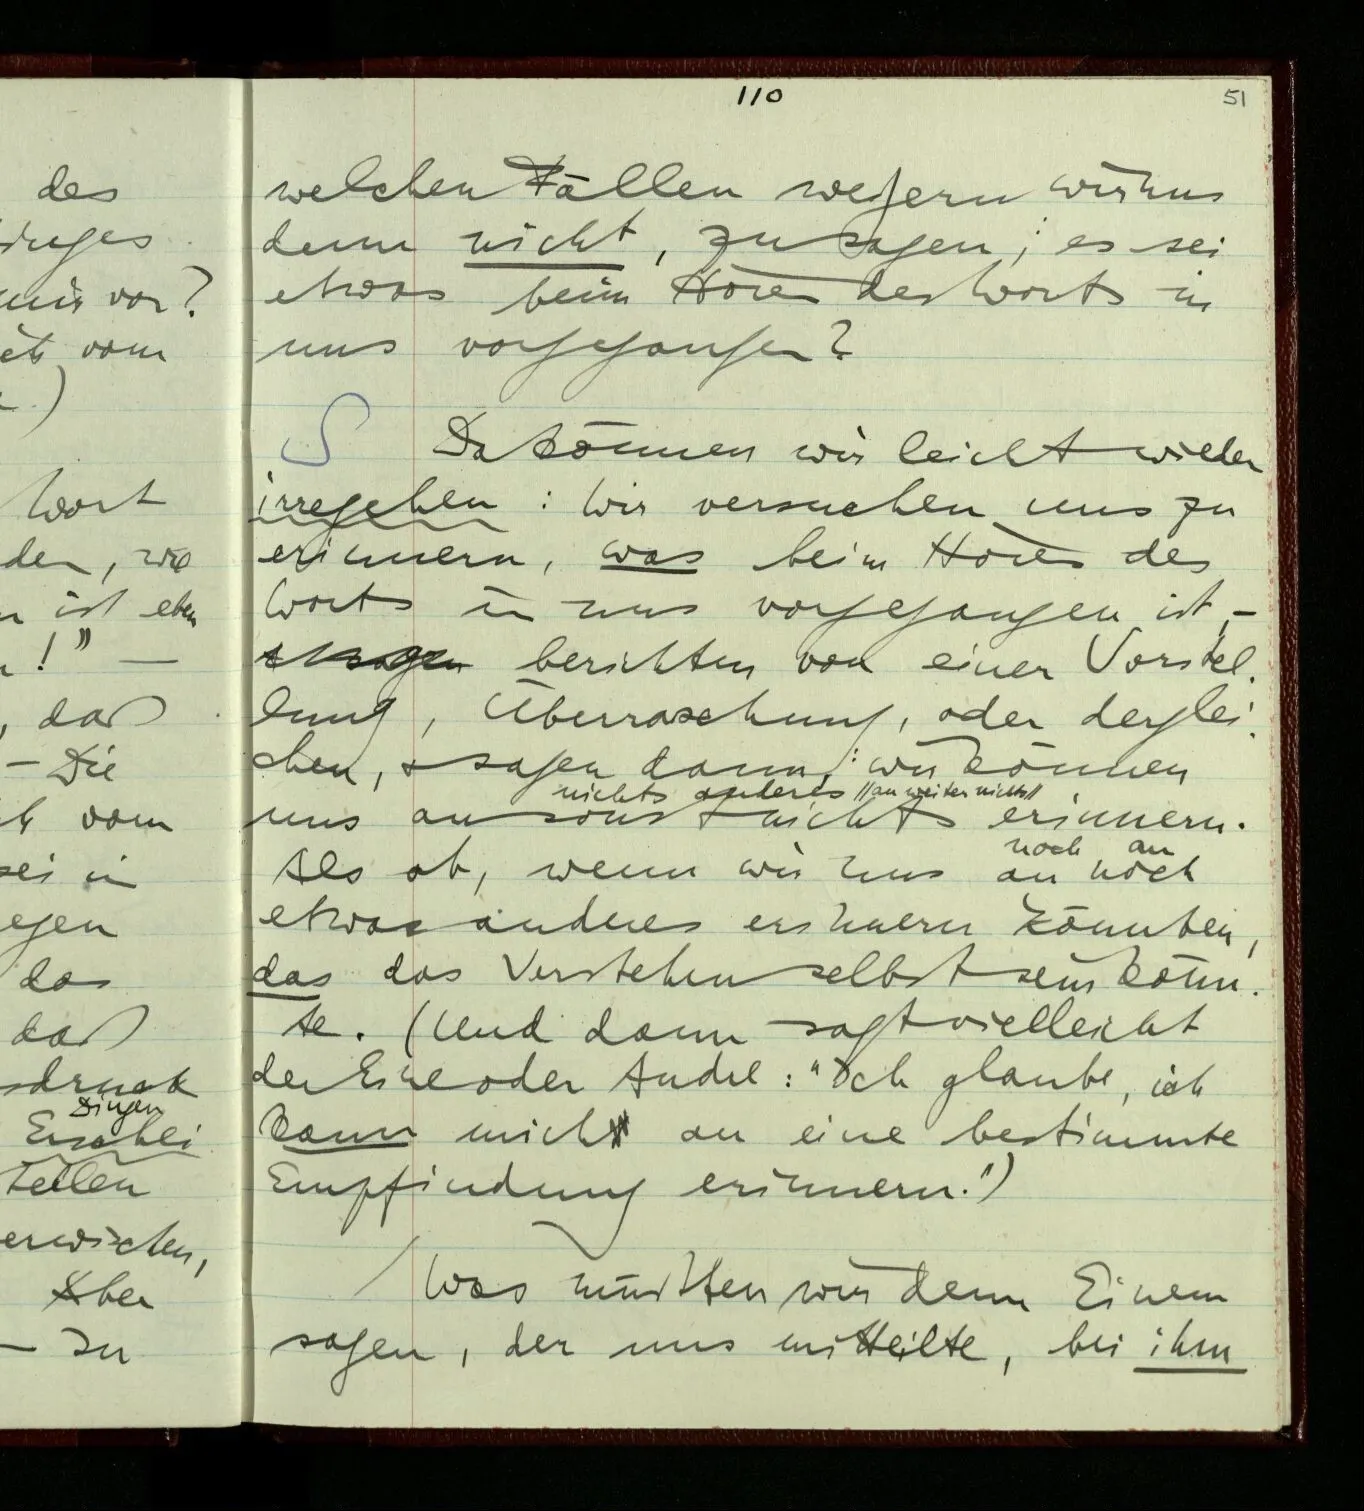 110
51
des
mir vor?
vom
)
Wort
den, wie
ist eben
!" —
, daß
— Die
vom
sei in
das
daß
Dingen
Teilen
erwischen,
Aber
— In
welchen Fällen weigern wir uns
denn nicht, zu sagen; es sei
etwas beim Hören des Worts in
uns vorgegangen?
S Da können wir leicht wieder
irregehen: Wir versuchen uns zu
erinnern, was beim Hören des
Worts in uns vorgegangen ist, –
berichten von einer Vorstel-
lung, Überraschung, oder derglei-
chen, & sagen dann: wir können
nichts anderes //an weiter nichts//
uns an sonst nichts erinnern.
noch an
Als ob, wenn wir uns an noch
etwas anderes erinnern könnten,
das das Verstehen selbst sein könn-
te. (Und dann sagt vielleicht
der Eine oder Andre: "Ich glaube, ich
kann mich an eine bestimmte
Empfindung erinnern.")
/ Was müßten wir denn Einem
sagen, der uns mitteilte, bei ihm